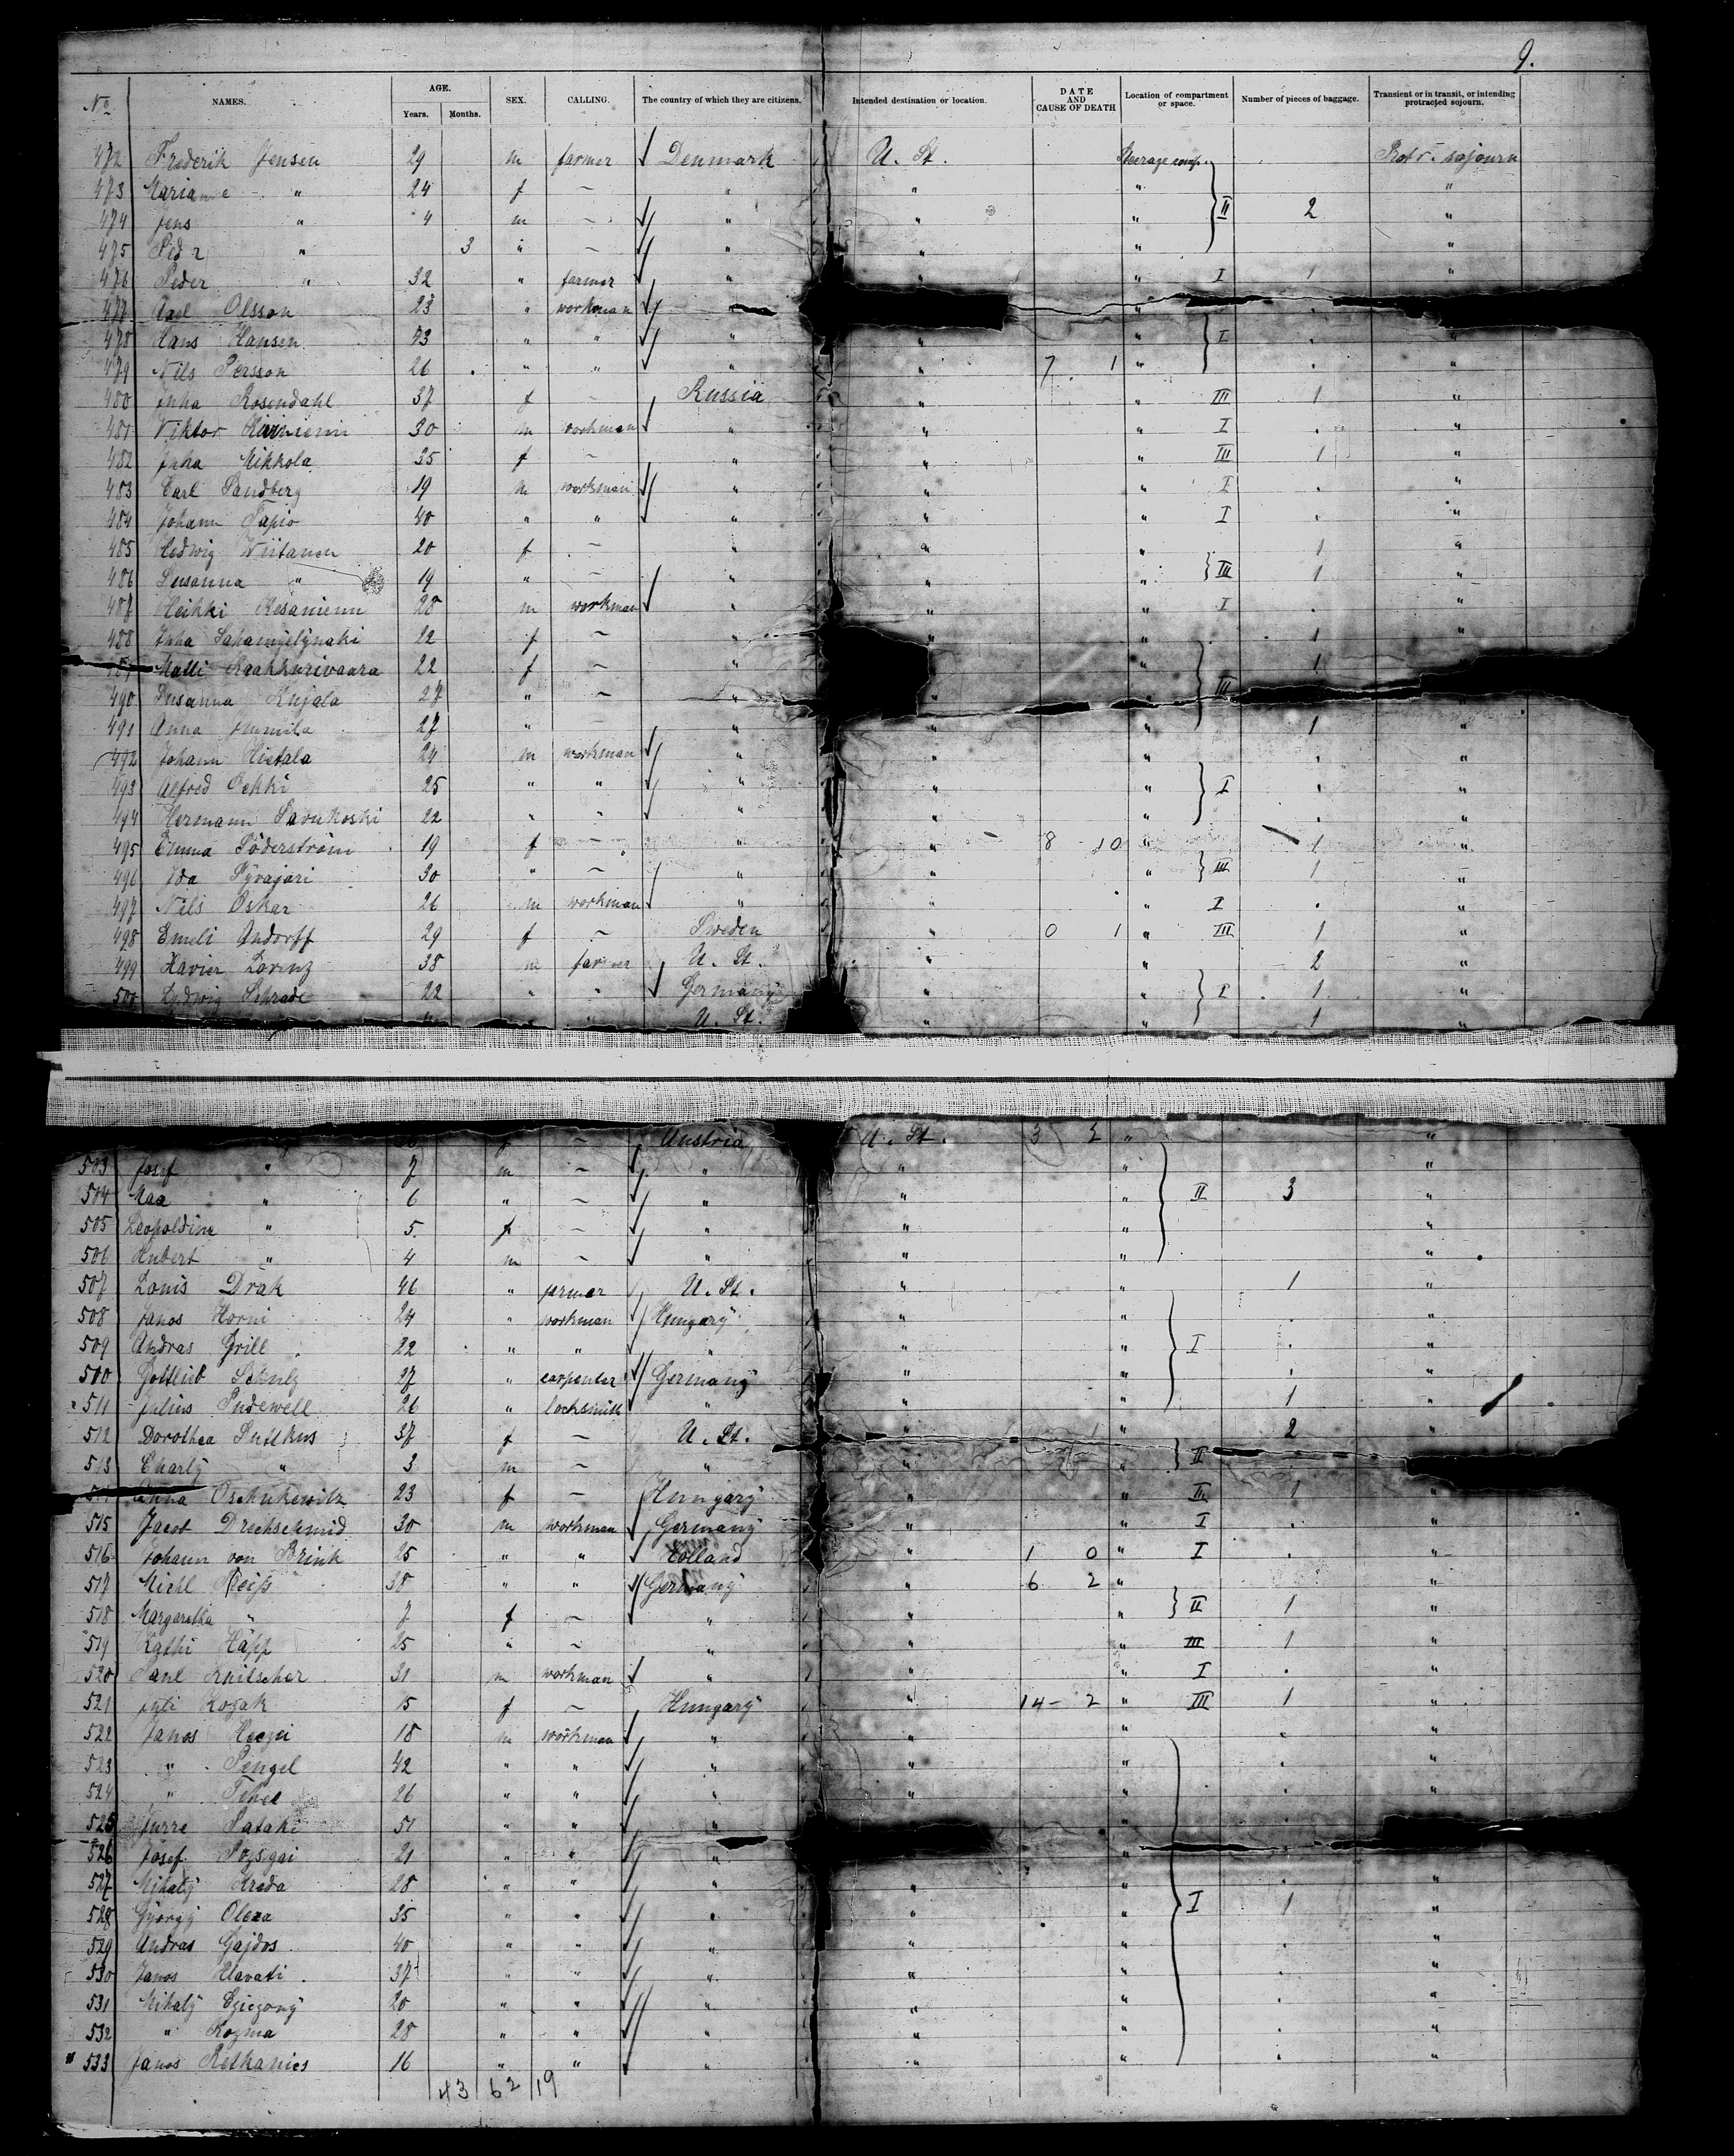 9.
No. NAMES. AGE. Years. Months. SEX. CALLING. The country of which they are citizens. Intended destination or location. DATE AND CAUSE OF DEATH Location of compartment or space. Number of pieces of baggage. Transient or in transit, or intending protracted sojourn.
472 Frederik Jensen 29 m farmer Denmark U. St. Steerage comp. Protr. sojourn
473 Mariane " 24 f – " " " "
474 Jens " 4 m – " " " II 2 "
475 Peder " 3 " – " " " "
476 Peder " 32 " farmer " " " I 1 "
477 Axel Olsson 23 " workman
478 Hans Hansen 43 " " " " " I . "
479 Nils Persson 26 " " " " 7 1 " . "
480 Juha Rosendahl 37 f – Russia " " III 1 "
481 Viktor 30 m workman " " " I . "
482 Juha Mikkola 35 f – " " " III 1 "
483 Carl Sandberg 19 m workman " " " I . "
484 Johann Tapio 40 " " " " " I . "
485 Hedwig Wiitanen 20 f – " " " 1 "
486 Susanna " 19 " – " " " III 1 "
487 Heikki Kesaniemi 28 m workman " " " I . "
488 Juha 22 f – " " " 1 "
Matti 22 f – " " 1
490 Susanna Kujala 27 " – " " " III
491 Anna 27 " – " " " 1 "
492 Johann Hietala 24 m workman " " " . "
493 Alfred Pekki 25 " " " " " I . "
494 Hermann Savukoski 22 " " " " " . "
495 Emma Söderström 19 f – " " 8 10 " 1 "
496 Ida Pyvajari 30 " – " " " III 1 "
497 Nils Oskar 26 m workman " " " I . "
498 Emeli Andorff 29 f – Sweden " 0 1 " III 1 "
499 Xavier Lorenz 38 m farmer U. St. " " 2 "
500 Ludwig Schrade 22 " " Germany " " I 1 "
" U. St. " " 1 "
f – Austria U. St. 3 2 " "
503 Josef " 7 m – " " " "
504 Max " 6 " – " " " II 3 "
505 Leopoldine " 5 f – " " " "
506 Hubert " 4 m – " " " "
507 Louis Drak 46 " farmer U. St. " " 1 "
508 Janos Horni 24 " workman Hungary " " . "
509 Andras Grill 22 " " " " " I . "
510 Gottlieb Schulz 27 " carpenter Germany " " . "
511 Julius Pudewell 26 " locksmith " " " 1 "
512 Dorothea Suttkus 37 f – U. St. " 1 " 2 "
513 Charly " 3 m – " " " II
Anna Oschukewitz 23 f – Hungary " " III 1 "
515 Jacob Drechschmid 30 m workman Germany " " I . "
516 Johann von Brink 25 " " Holland " 1 0 " I . "
517 Michl 38 " " Germany " 6 2 " "
518 Margaretha " 7 f – " " " II 1 "
519 Kathi Häpp 25 " – " " " III 1 "
520 Paul Knitscher 31 m workman " " " I . "
521 Juli Kozak 15 f – Hungary " 14– 2 " III 1 "
522 Janos 18 m workman " " " . "
523 " Pengel 42 " " " " " . "
524 " 26 " " " " " . "
525 Jurre Pataki 51 " " " " .
526 Josef Pozsgai 21 " " " "
527 Mihaly Kreda 28 " " " " " . "
528 György Olexa 35 " " " " " I 1 "
529 Andras Gajdos 40 " " " " " . "
530 Janos Hlavati 37 " " " " " . "
531 Mihaly 20 " " " " " . "
532 " Kozma 28 " " " " " . "
533 Janos Rethanics 16 " " " " " . "
43 62 19